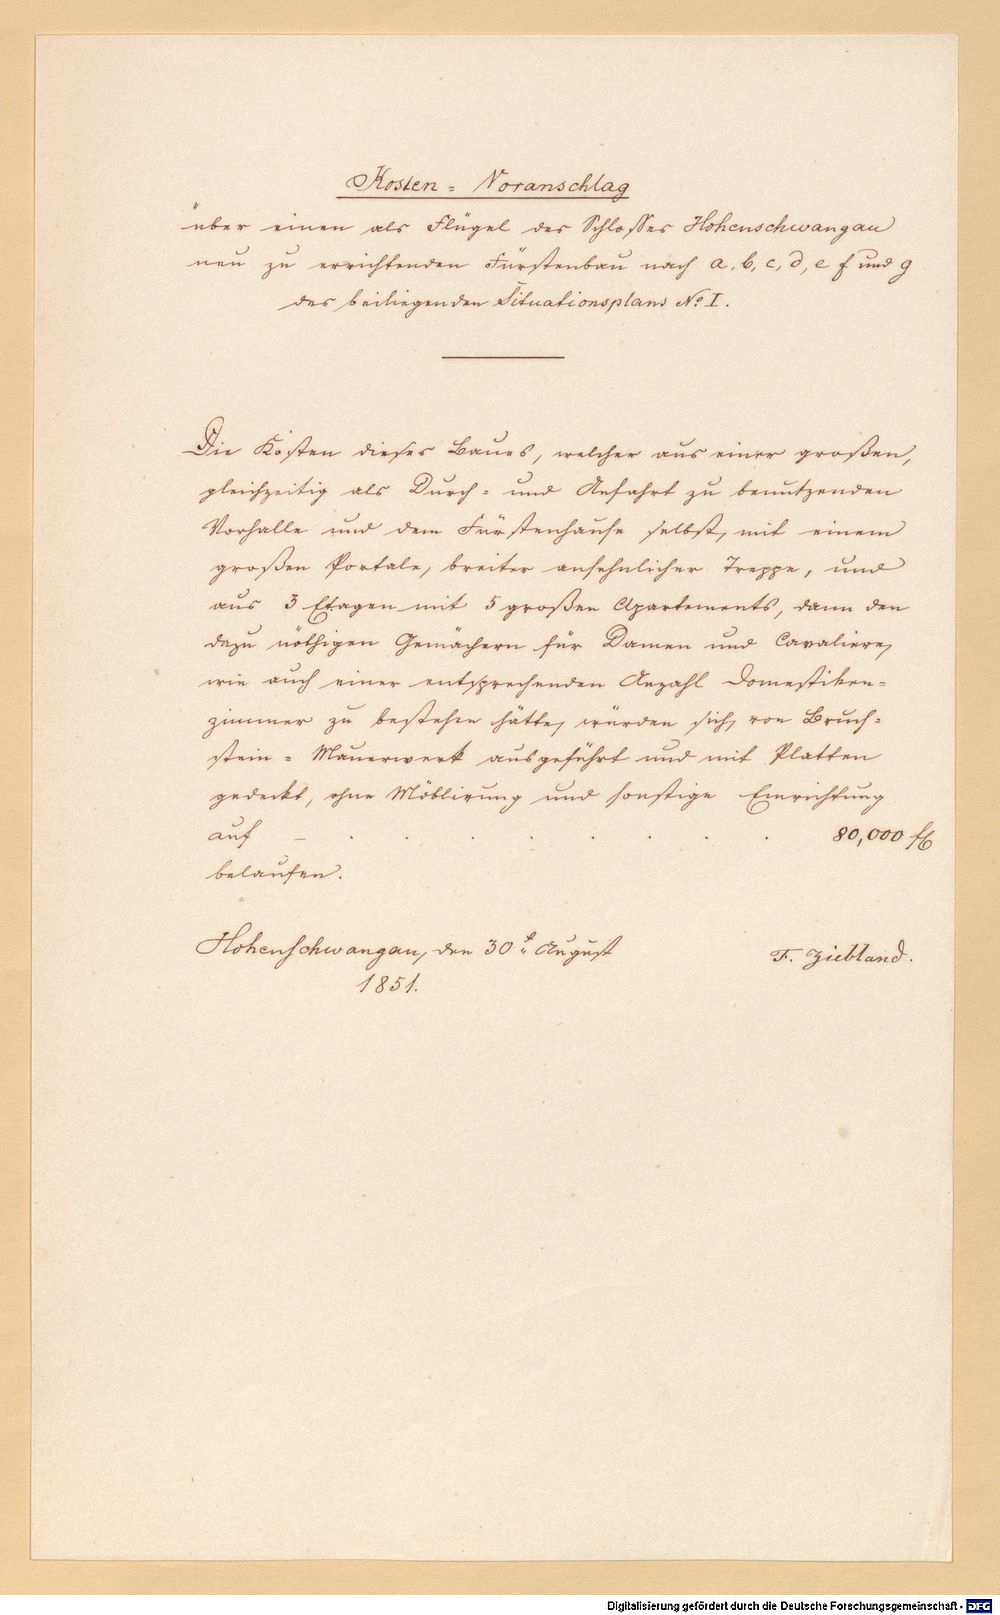 Kosten = Voranschlag
über einen als Flügel des Schlosses Hohenschwangau
neu zu errichtenden Fürstenbau nach a, b, c, d, e f und g
des beiliegenden Situationsplans No I.
Die Kosten dieses Baues, welcher aus einer großen,
gleichzeitig als Durch= und Anfahrt zu benutzenden
Vorhalle und dem Fürstenhause selbst, mit einem
großen Portale, breiter ansehnlicher Treppe, und
aus 3 Etagen mit 5 großen Apartements, dann den
dazu nöthigen Gemächern für Damen und Cavaliere,
wie auch einer entsprechenden Anzahl Domestiken=
zimmer zu bestehen hätte, würden sich, von Bruch=
stein = Mauerwerk ausgeführt und mit Platten
gedeckt, ohne Möblirung und sonstige Einrichtung
auf – . . . . . . . . 80,000 fl
belaufen.
Hohenschwangau, den 30t August
1851.
F. Ziebland.
Digitalisierung gefördert durch die Deutsche Forschungsgemeinschaft - DFG